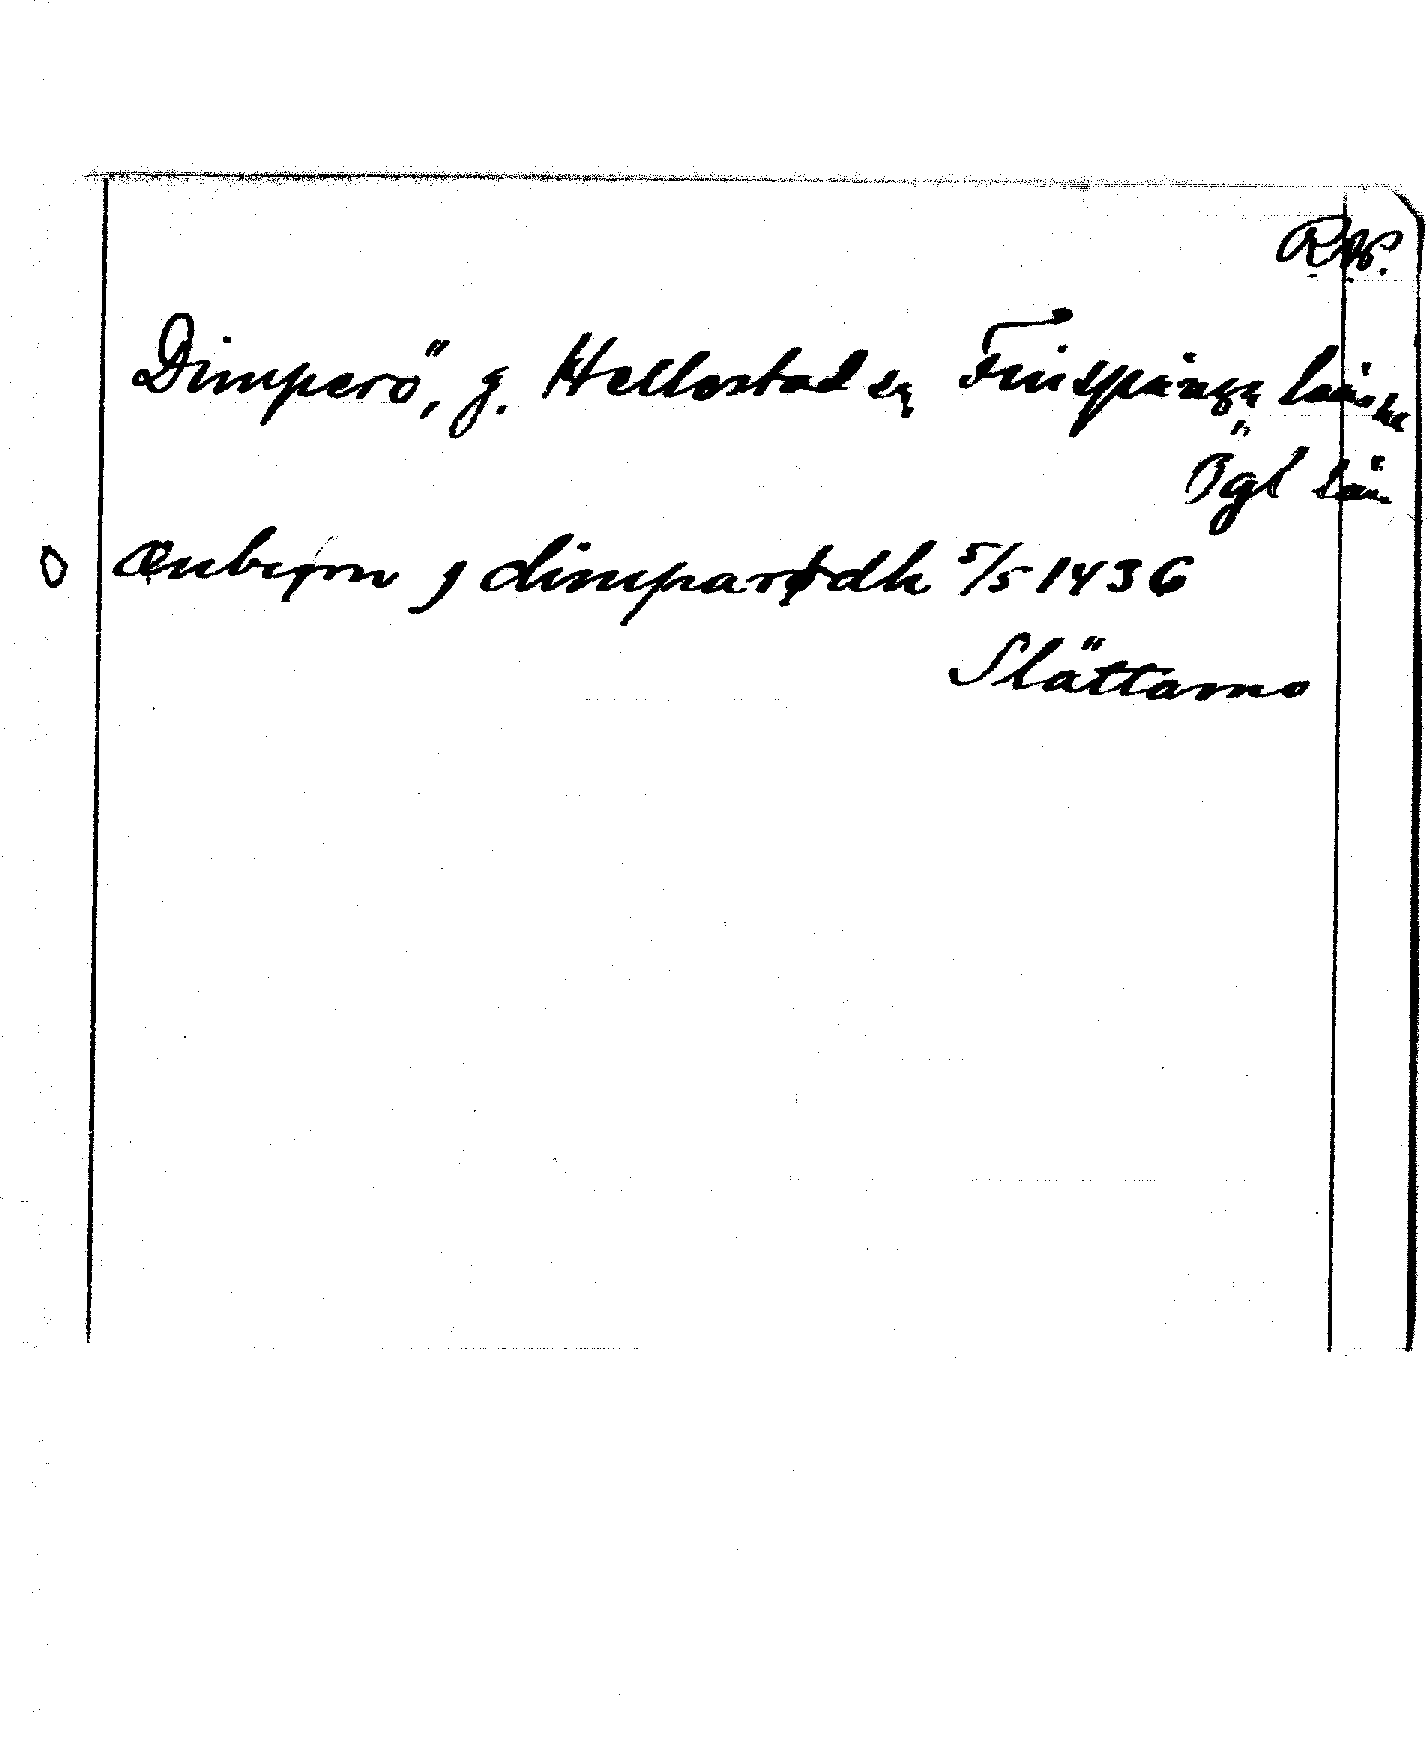 Dimperö, g. Hellestad sn Finspånga länshd
Ögl län
Ænbiørn j dimparødh 5/5 1436
Slättamo